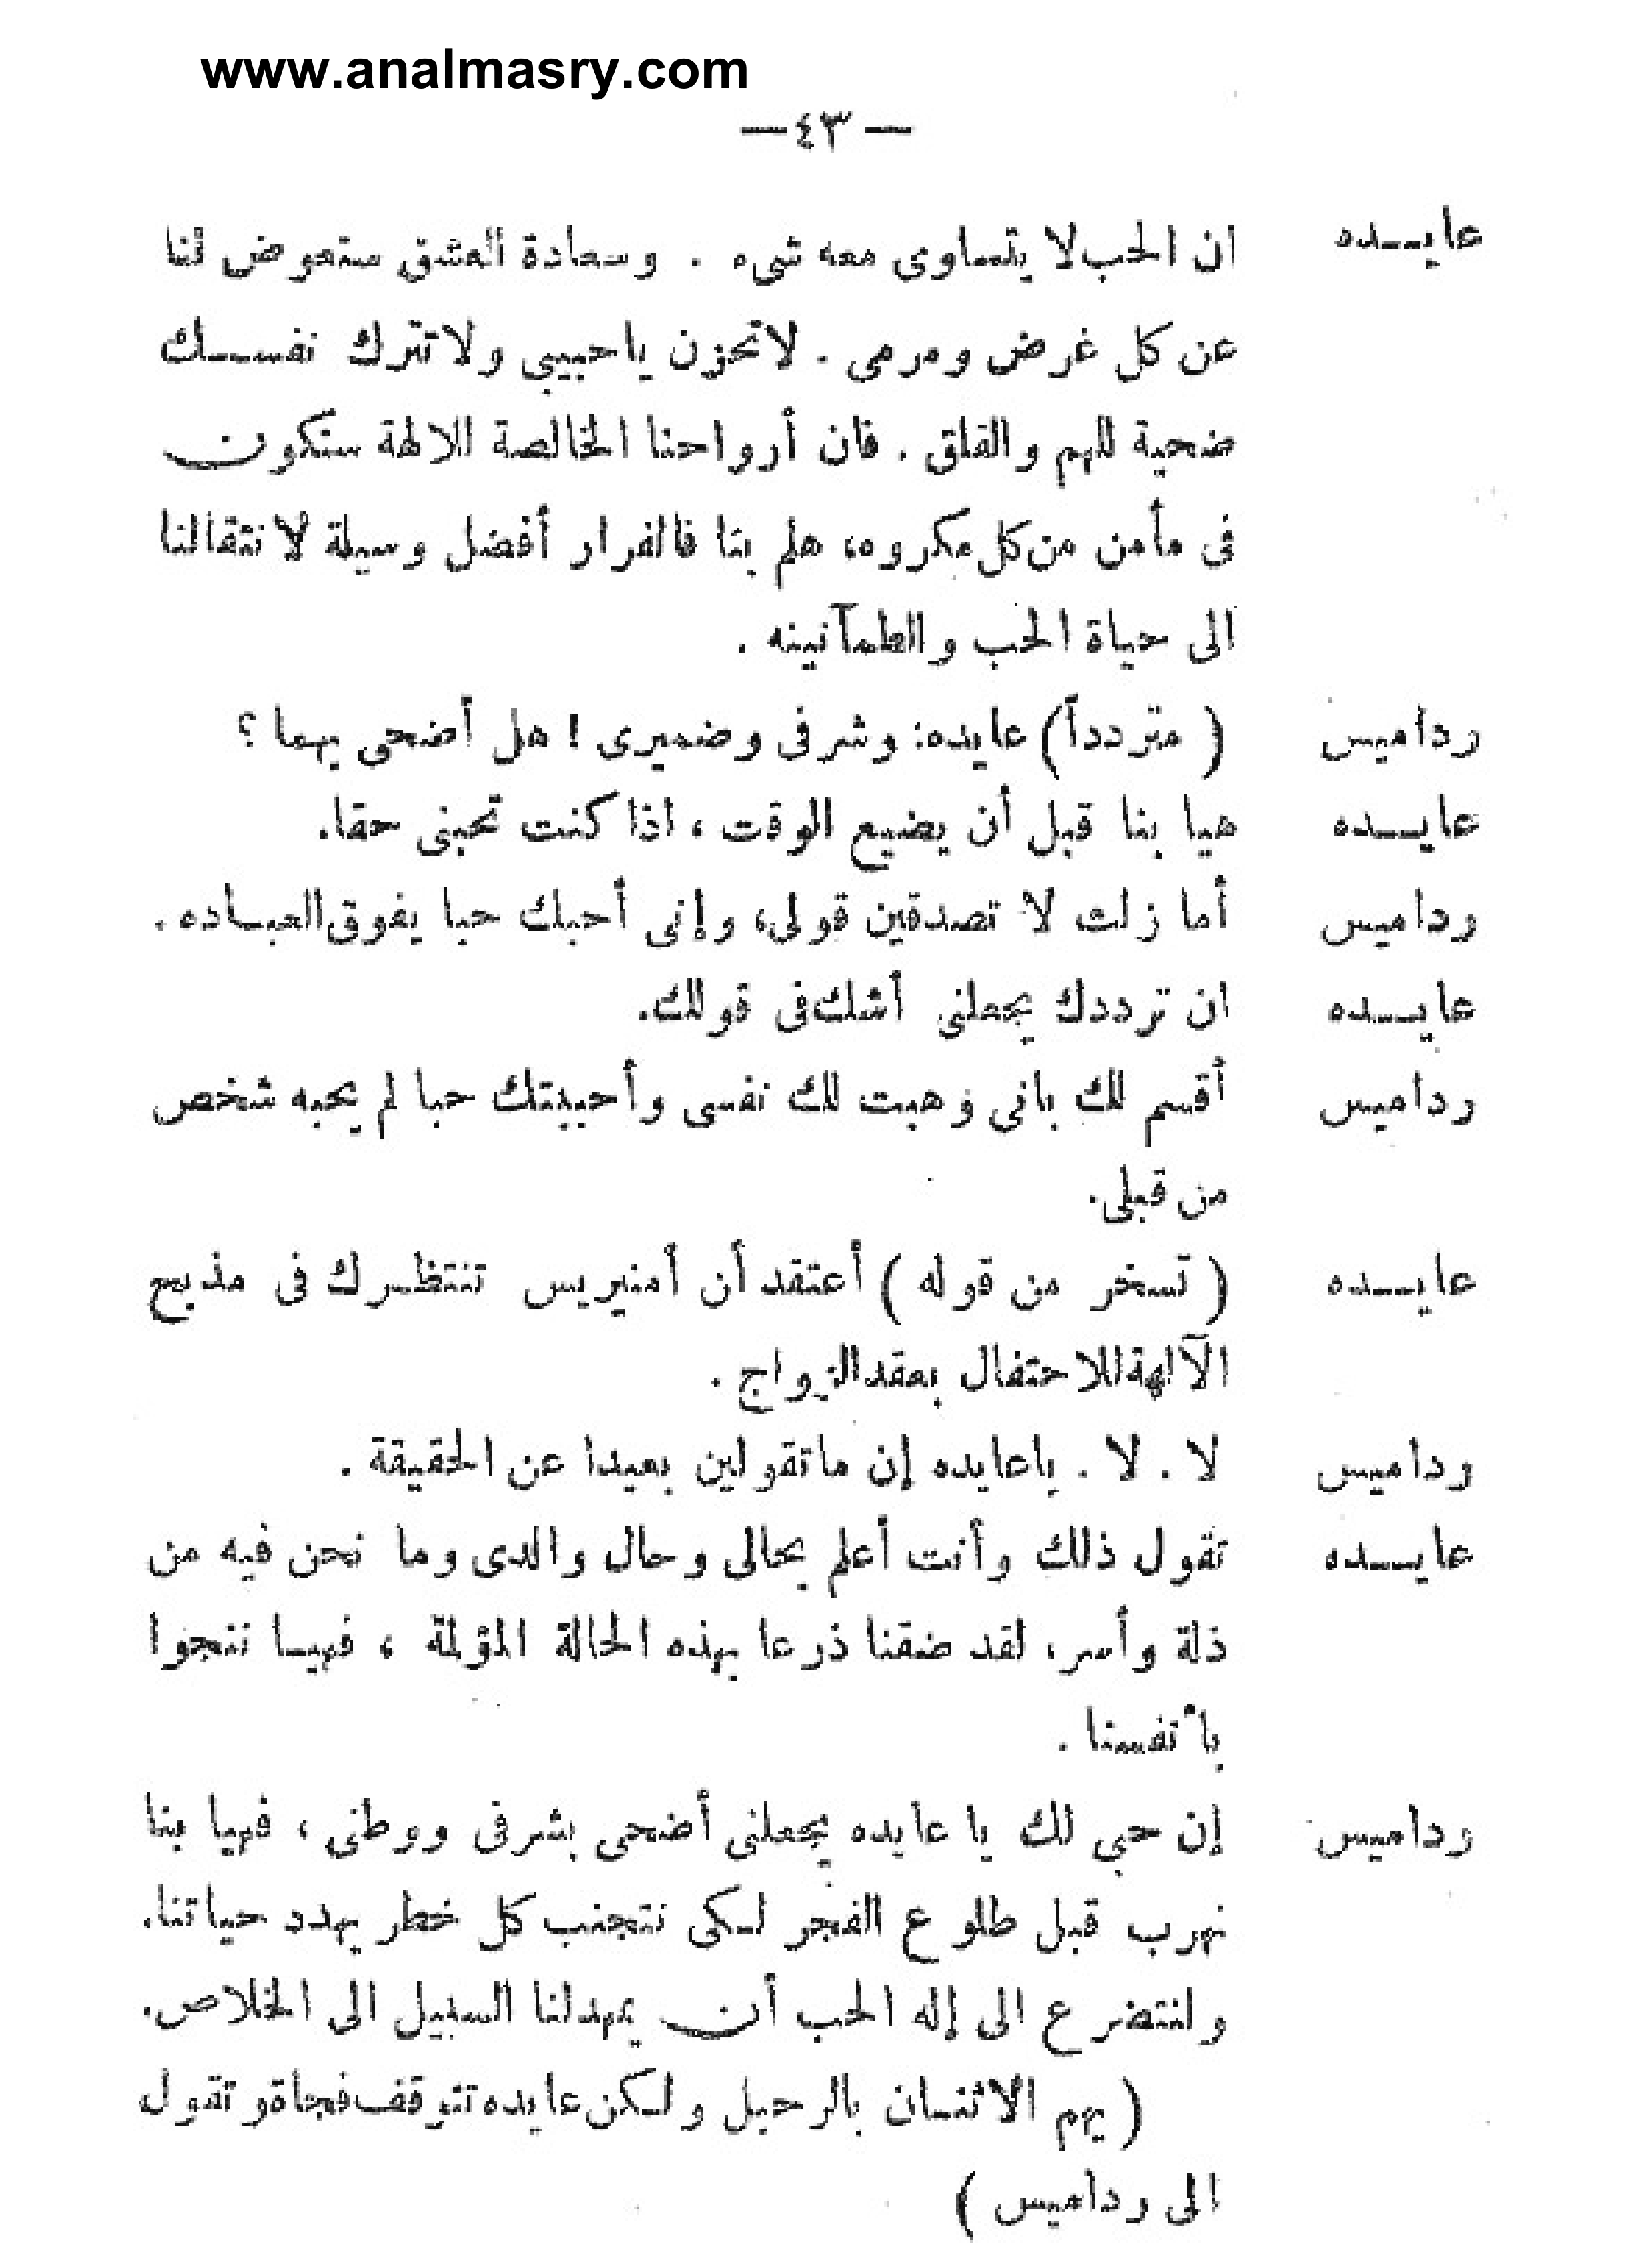 www.analmasry.com
— ٤٣ —
عايـــده ان الحب لا يتساوى معه شىء . وسعادة العشق ستعوض لنا
عن كل غرض ومرمى . لا تحزن ياحبيبي ولا تترك نفســـك
ضحية للهم والقلق . فان أرواحنا الخالصة للالهة ستكون
فى مأمن من كل مكروه، هلم بنا فالفرار أفضل وسيلة لانتقالنا
الى حياة الحب والطمآنينه .
رداميس ( متردداً ) عايده: وشرفى وضميرى ! هل أضحى بهما ؟
عايـــده هيا بنا قبل أن يضيع الوقت ، اذا كنت تحبنى حقا.
رداميس أما زلت لا تصدقين قولى، وإنى أحبك حبا يفوق العبـاده .
عايـــده ان ترددك يجعلنى أشك فى قولك.
رداميس أقسم لك بانى وهبت لك نفسى وأحببتك حبا لم يحبه شخص
من قبلى.
عايـــده ( تسخر من قوله ) أعتقد أن أمنيريس تنتظـرك فى مذبح
الآلهة للاحتفال بعقد الزواج .
رداميس لا . لا . ياعايده إن ماتقولين بعيدا عن الحقيقة .
عايـــده تقول ذلك وأنت أعلم بحالى وحال والدى وما نحن فيه من
ذلة وأسر، لقد ضقنا ذرعا بهذه الحالة المؤلمة ، فهيـا ننجوا
بأنفسنا .
رداميس إن حبي لك يا عايده يجعلنى أضحى بشرفى ووطنى ، فهيا بنا
نهرب قبل طلوع الفجر لـكى نتجنب كل خطر يهدد حياتنا،
ولنتضرع الى إله الحب أن يمهد لنا السبيل الى الخلاص.
( يهم الاثنـان بالرحيل ولـكن عايده تتوقف فجأة وتقول
الى رداميس )